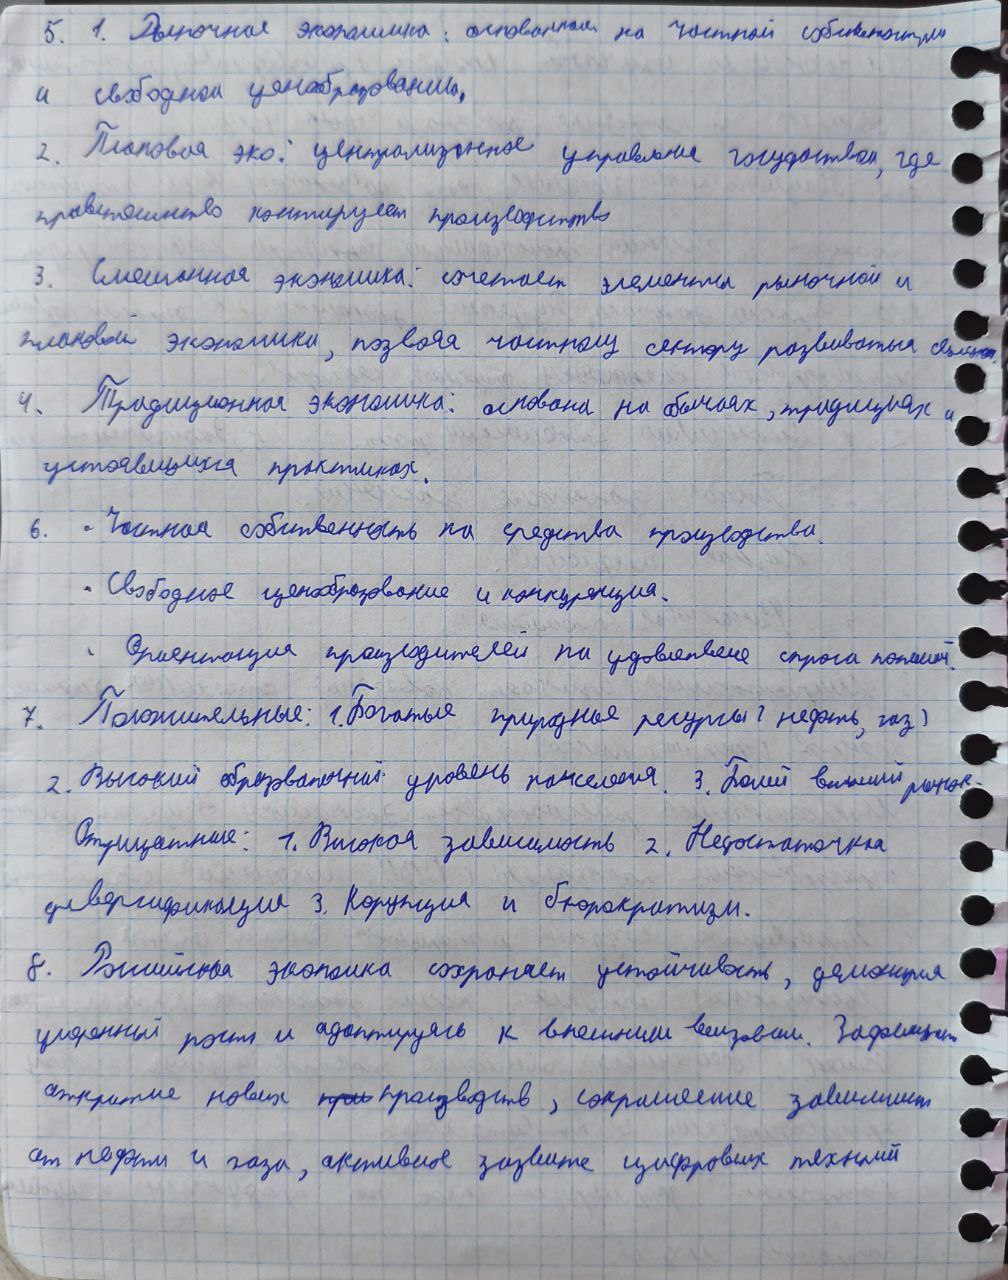 5. 1. Рыночная экономика: основанная на частной собственности
и свободном ценообразовании.
2. Плановая эко: централизонное управление государством, где
правительство контирует производство
3. Смешанная экономика: сочетает элементы рыночной и
плановой экономики, позволяя частному сектору развиваться
4. Традиционная экономика: основана на обычаях, традициях и
устоявшихся практиках.
6. • Частная собственность на средства производства.
• Свободное ценообразование и конкуренция.
• Ориентация производителей на удовлетвение спроса
7. Положительные: 1. Богатые природные ресурсы (нефть, газ)
2. Высокий образованный уровень населения. 3. внешний рынок.
Отрицатные: 1. Высокая зависимость 2. Недостаточная
диверсификация 3. Корупция и бюрократизм.
8. Российская экономика сохраняет устойчивость,
умеренный рост и адаптируясь к внешним вызовам.
открытие новых производств, сокращение зависимости
от нефти и газа, активное цифровых технолий